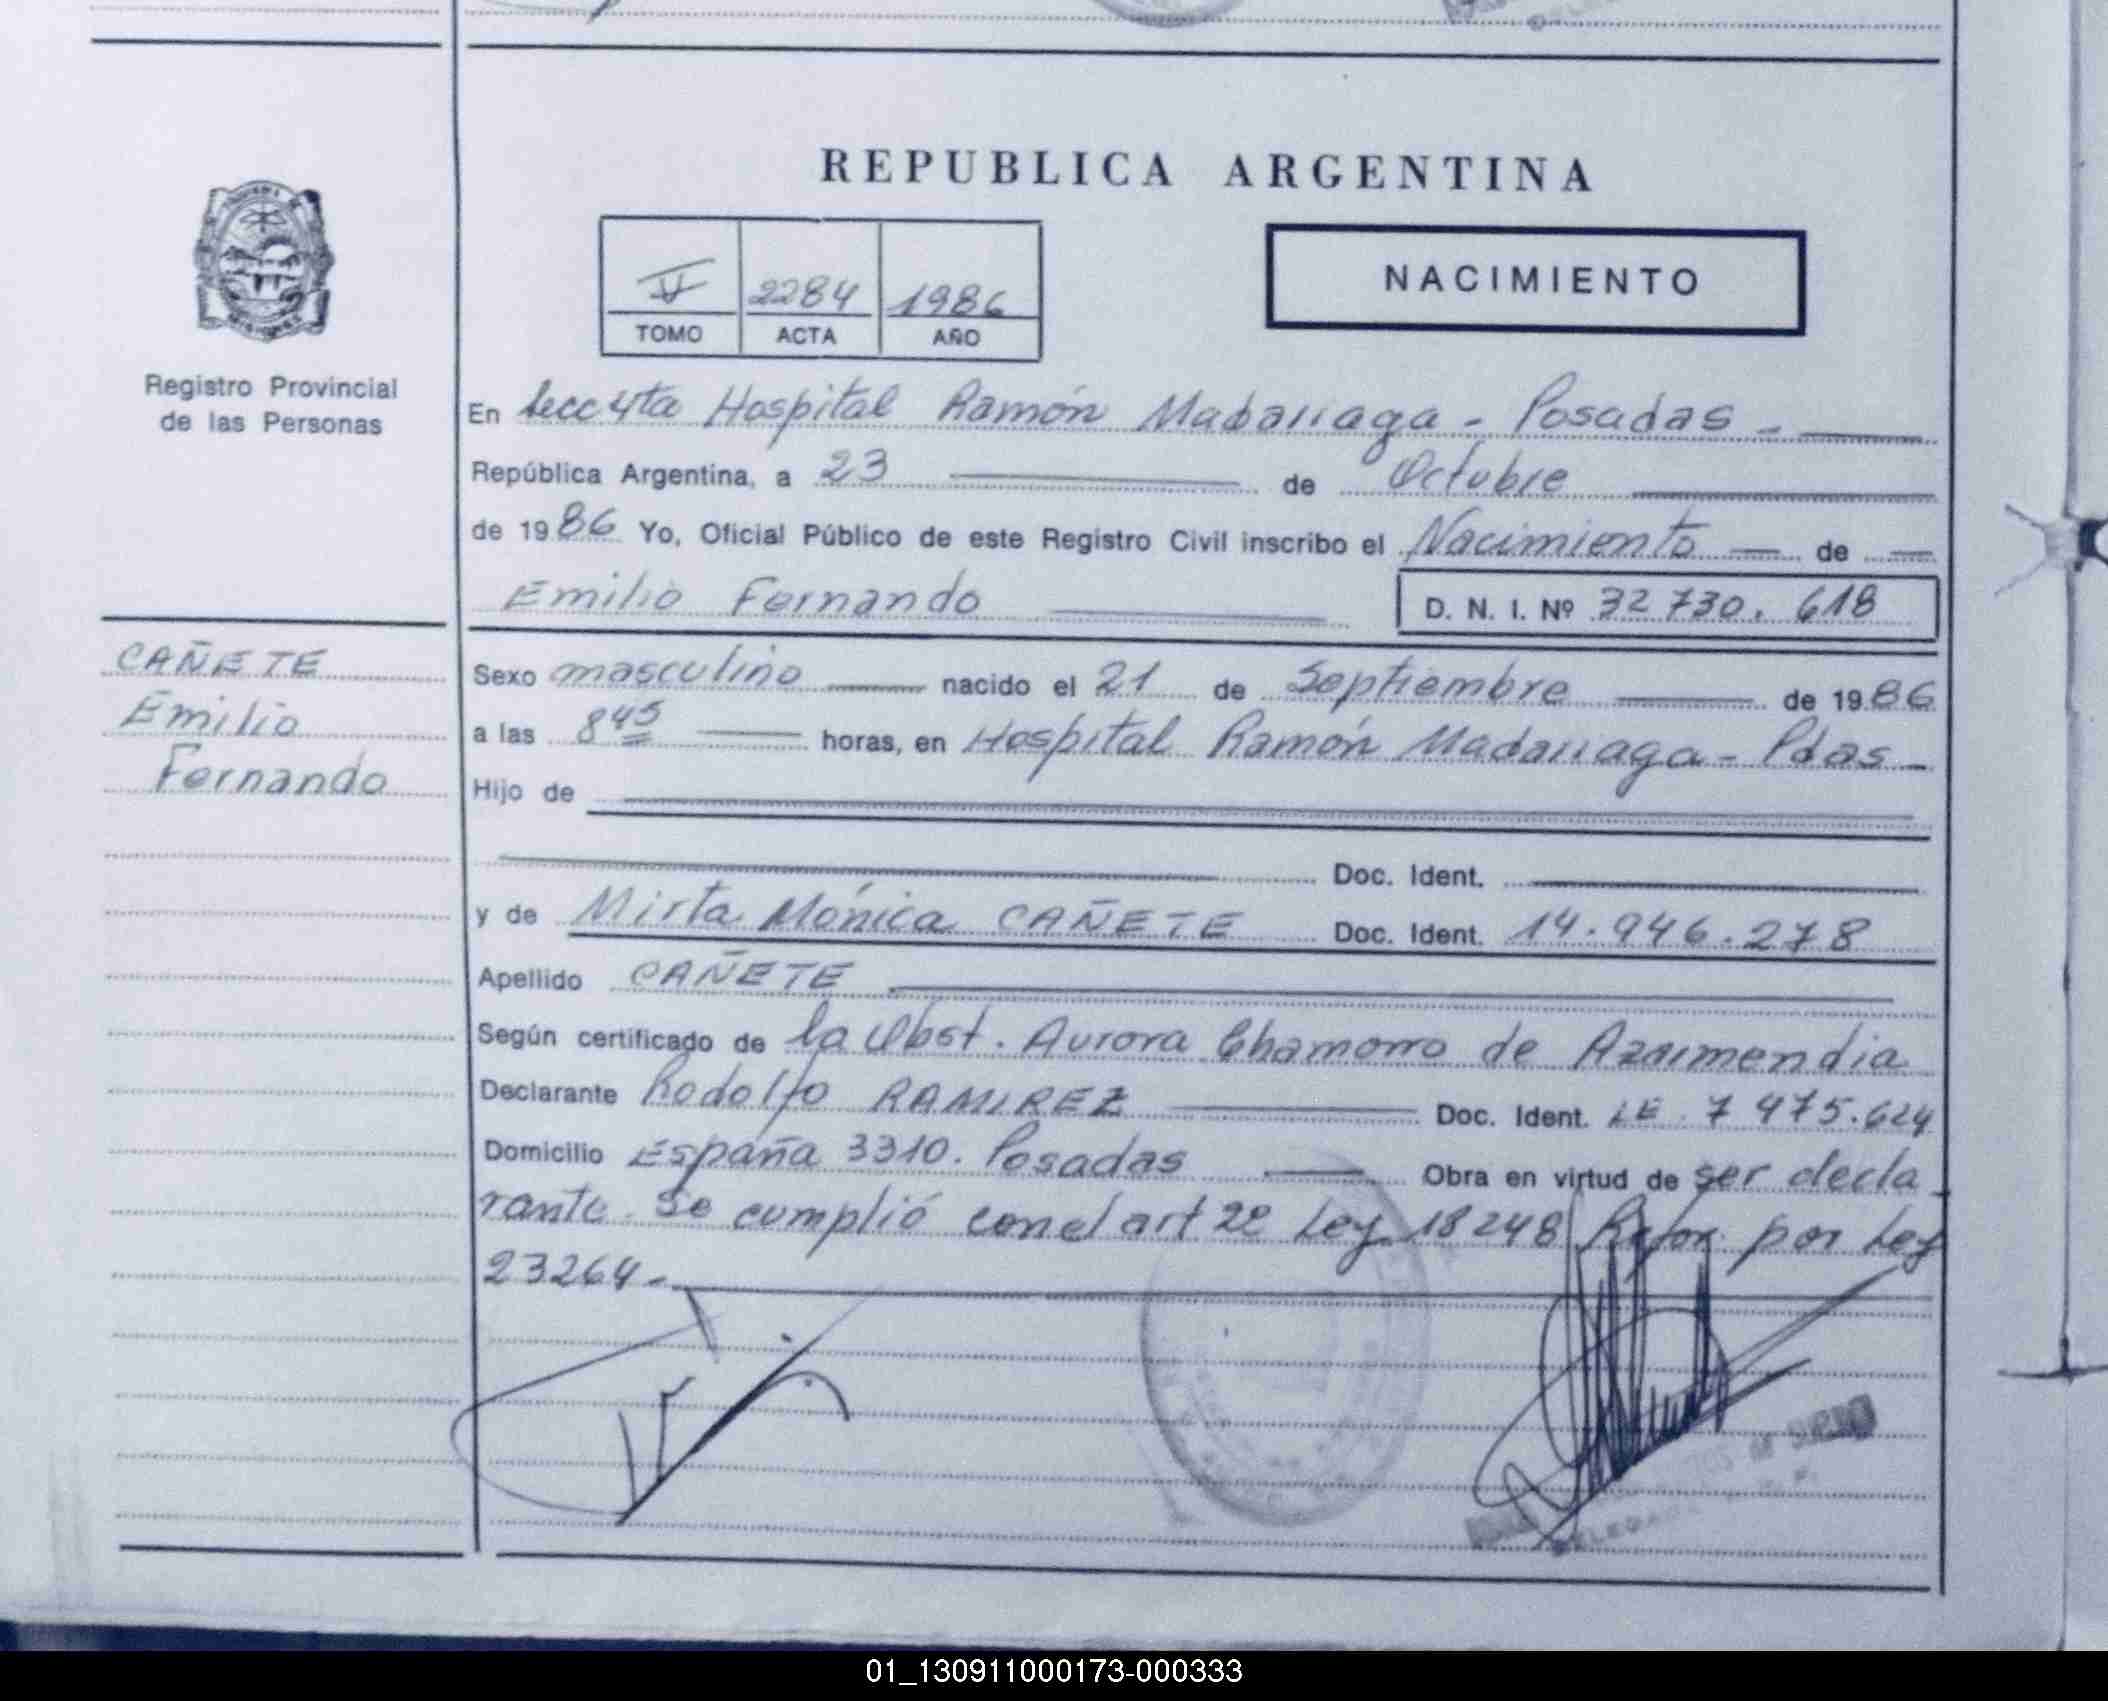 REPUBLICA ARGENTINA
NACIMIENTO
V 2284 1986
TOMO ACTA AÑO
Registro Provincial
de las Personas
En Secc 4ta Hospital Ramón Madariaga - Posadas -
República Argentina, a 23 de Octubre
de 1986 Yo, Oficial Público de este Registro Civil inscribo el Nacimiento de
Emilio Fernando D. N. I. Nº 32 730. 618
CAÑETE
Emilio
Fernando
Sexo masculino nacido el 21 de Septiembre de 1986
a las 8 45 horas, en Hospital Ramón Madariaga - Pdas -
Hijo de
Doc. Ident.
y de Mirta Mónica CAÑETE Doc. Ident. 14.946.278
Apellido CAÑETE
Según certificado de la Obst. Aurora Chamorro de Azarmendia
Declarante Rodolfo RAMIREZ Doc. Ident. LE 7 475.624
Domicilio España 3310. Posadas Obra en virtud de ser decla
rante. Se cumplió con el art 2º Ley 18248 Refor por Ley
23264-
01_130911000173-000333